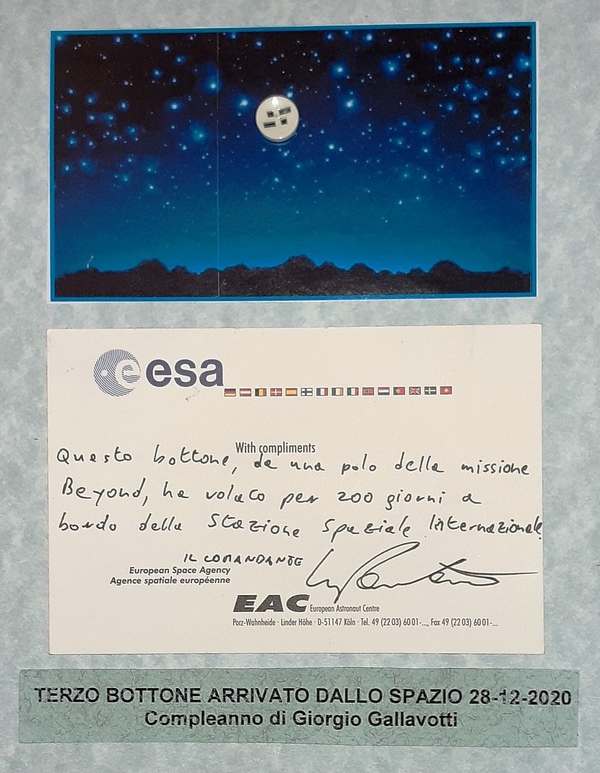 esa
With compliments
Questo bottone, da una polo della missione
Beyond, ha volato per 200 giorni a
bordo della Stazione Spaziale Internazionale
IL COMANDANTE
European Space Agency
Agence spatiale européenne
EAC European Astronaut Centre
Porz-Wahnheide · Linder Höhe · D-51147 Köln · Tel. 49 (22 03) 60 01-..., Fax 49 (22 03) 60 01-...
TERZO BOTTONE ARRIVATO DALLO SPAZIO 28-12-2020
Compleanno di Giorgio Gallavotti